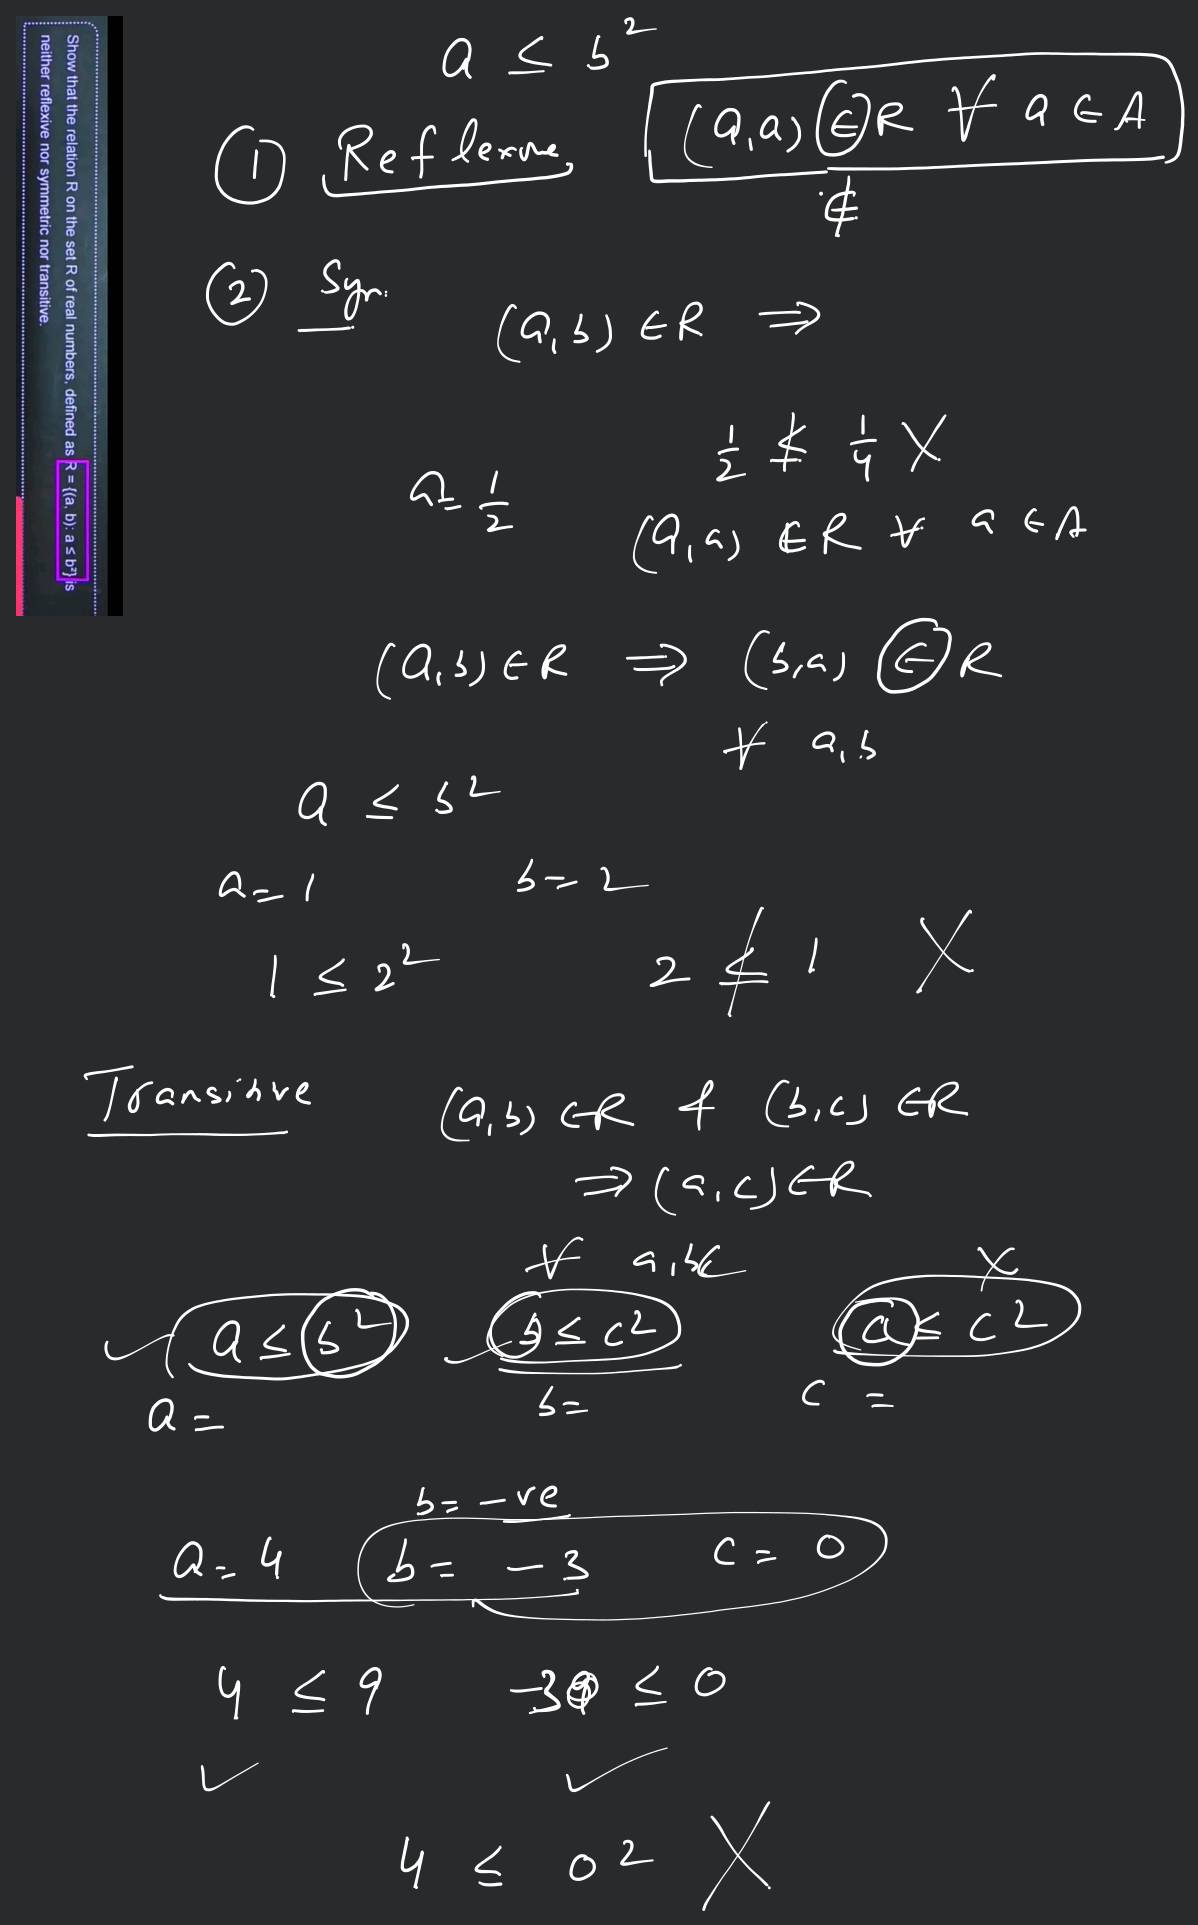 Show that the relation R on the set R of real numbers, defined as R = {(a, b): a ≤ b²} is
neither reflexive nor symmetric nor transitive.
a ≤ b²
① Reflexive, (a,a) ∈ R ∀ a ∈ A
∉
② Sym.
(a,b) ∈ R ⇒
1/2 ≰ 1/4 X
a = 1/2
(a,a) ∉ R ∀ a ∈ A
(a,b) ∈ R ⇒ (b,a) ∈ R
∀ a,b
a ≤ b²
a = 1 b = 2
1 ≤ 2² 2 ≰ 1 X
Transitive (a,b) ∈ R & (b,c) ∈ R
⇒ (a,c) ∈ R
∀ a,b,c X
✓ a ≤ b² ✓ b ≤ c² a ≤ c²
a = b = c =
b = -ve
a = 4 b = -3 c = 0
4 ≤ 9 -3 ≤ 0
✓ ✓
4 ≤ 0² X